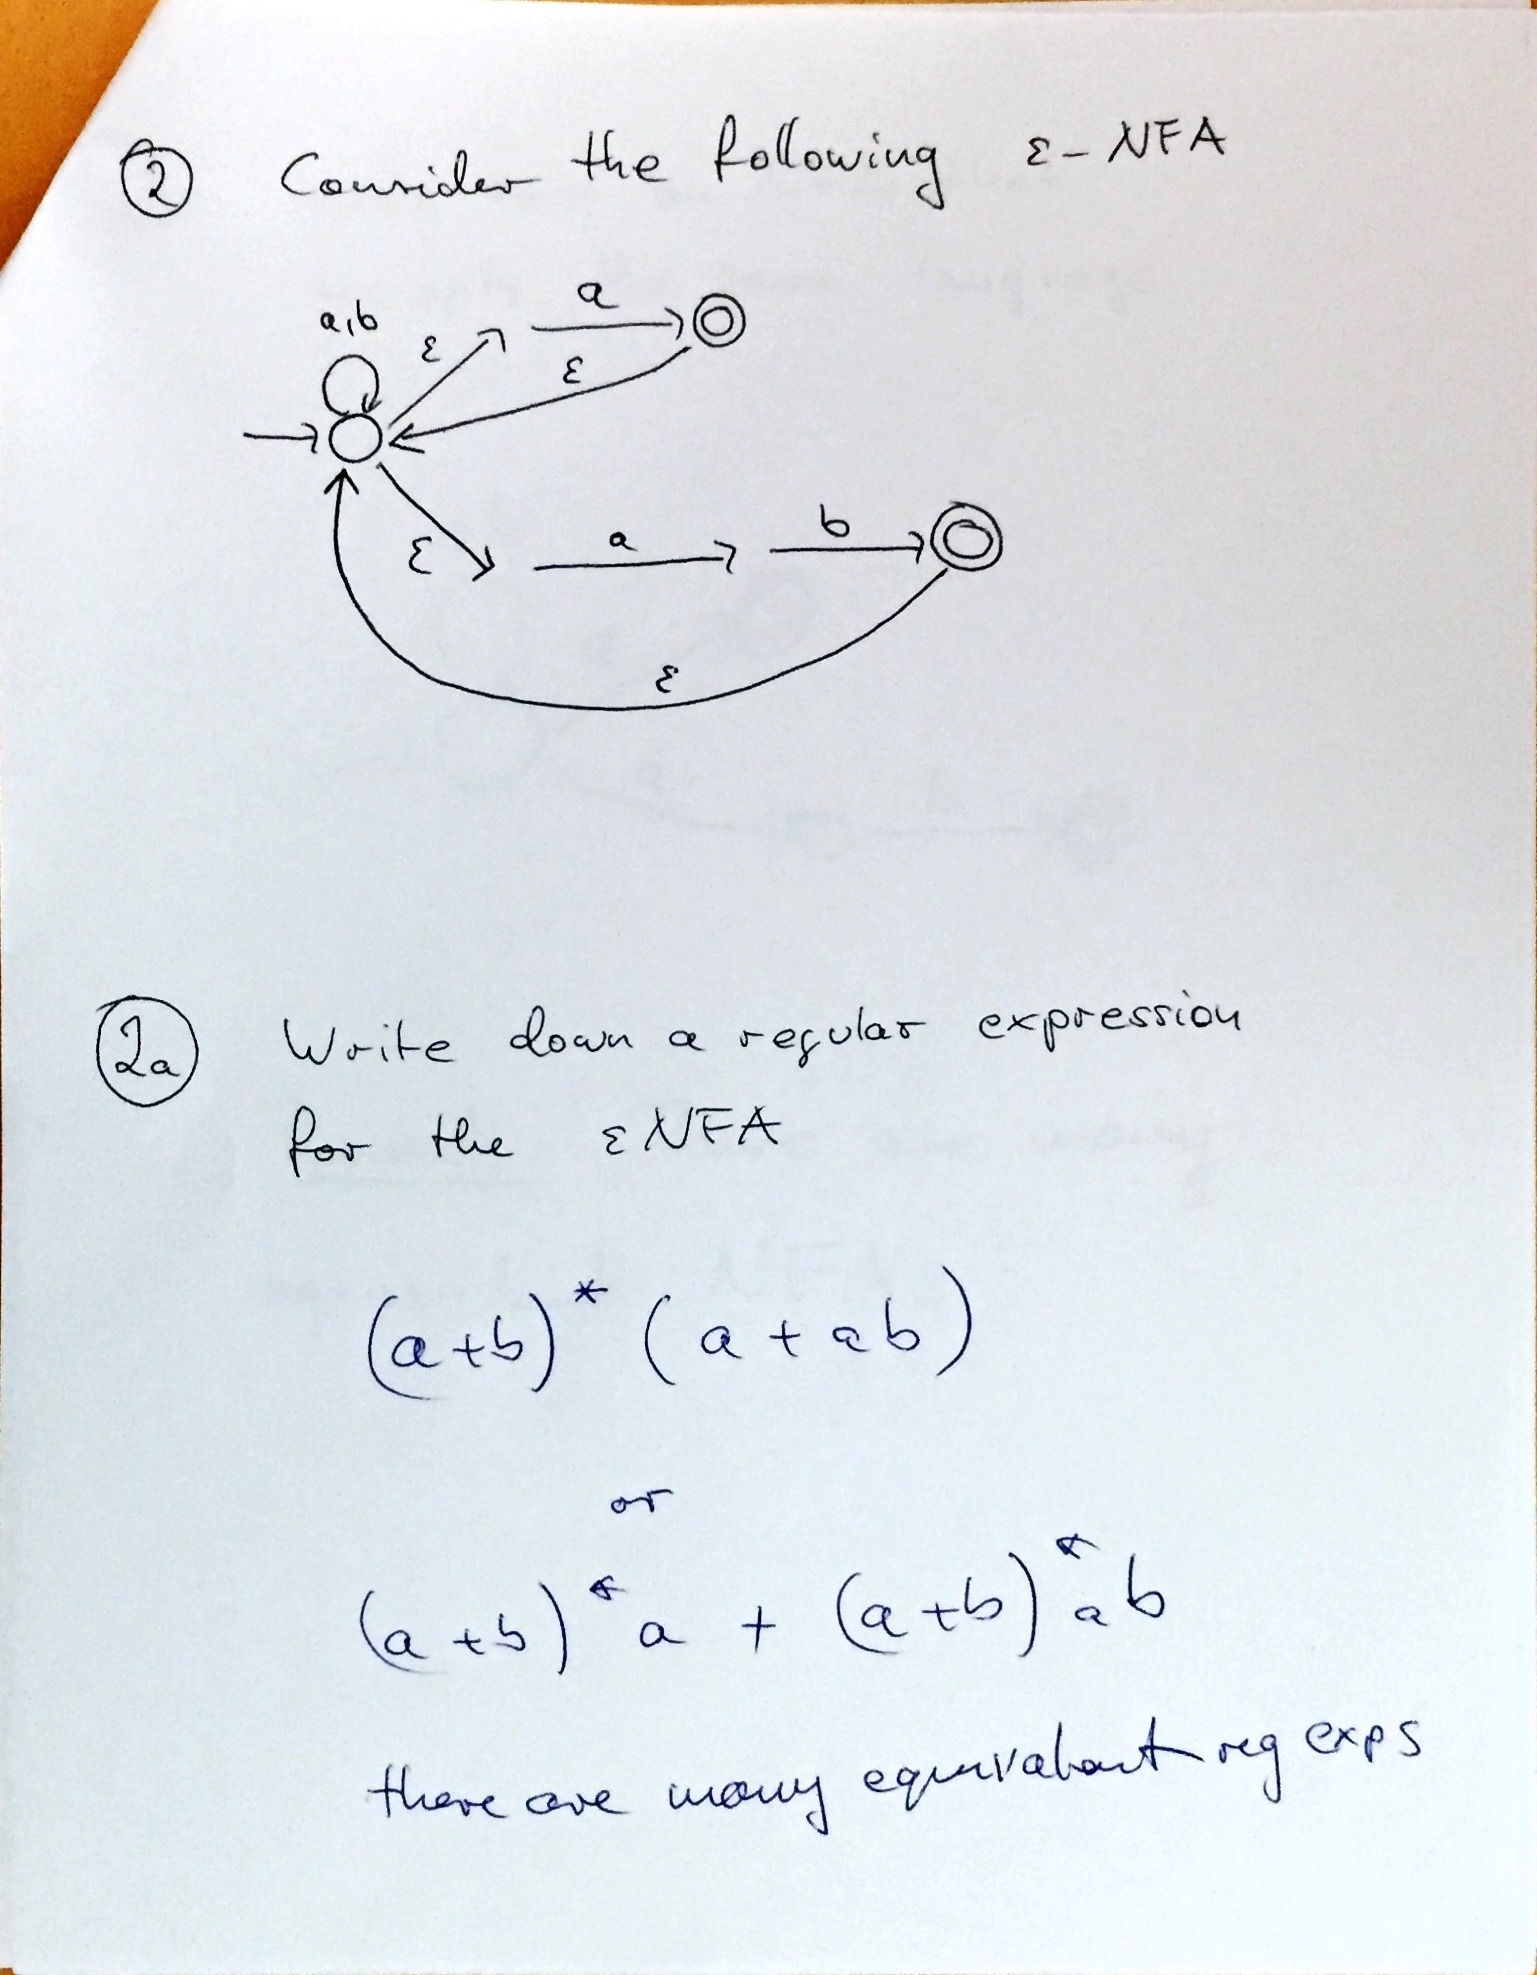 2 Consider the following ε-NFA
a,b
ε
a
ε
ε
a
b
ε
2a Write down a regular expression
for the εNFA
(a+b)* (a+ab)
or
(a+b)*a + (a+b)*ab
there are many equivalent reg exps